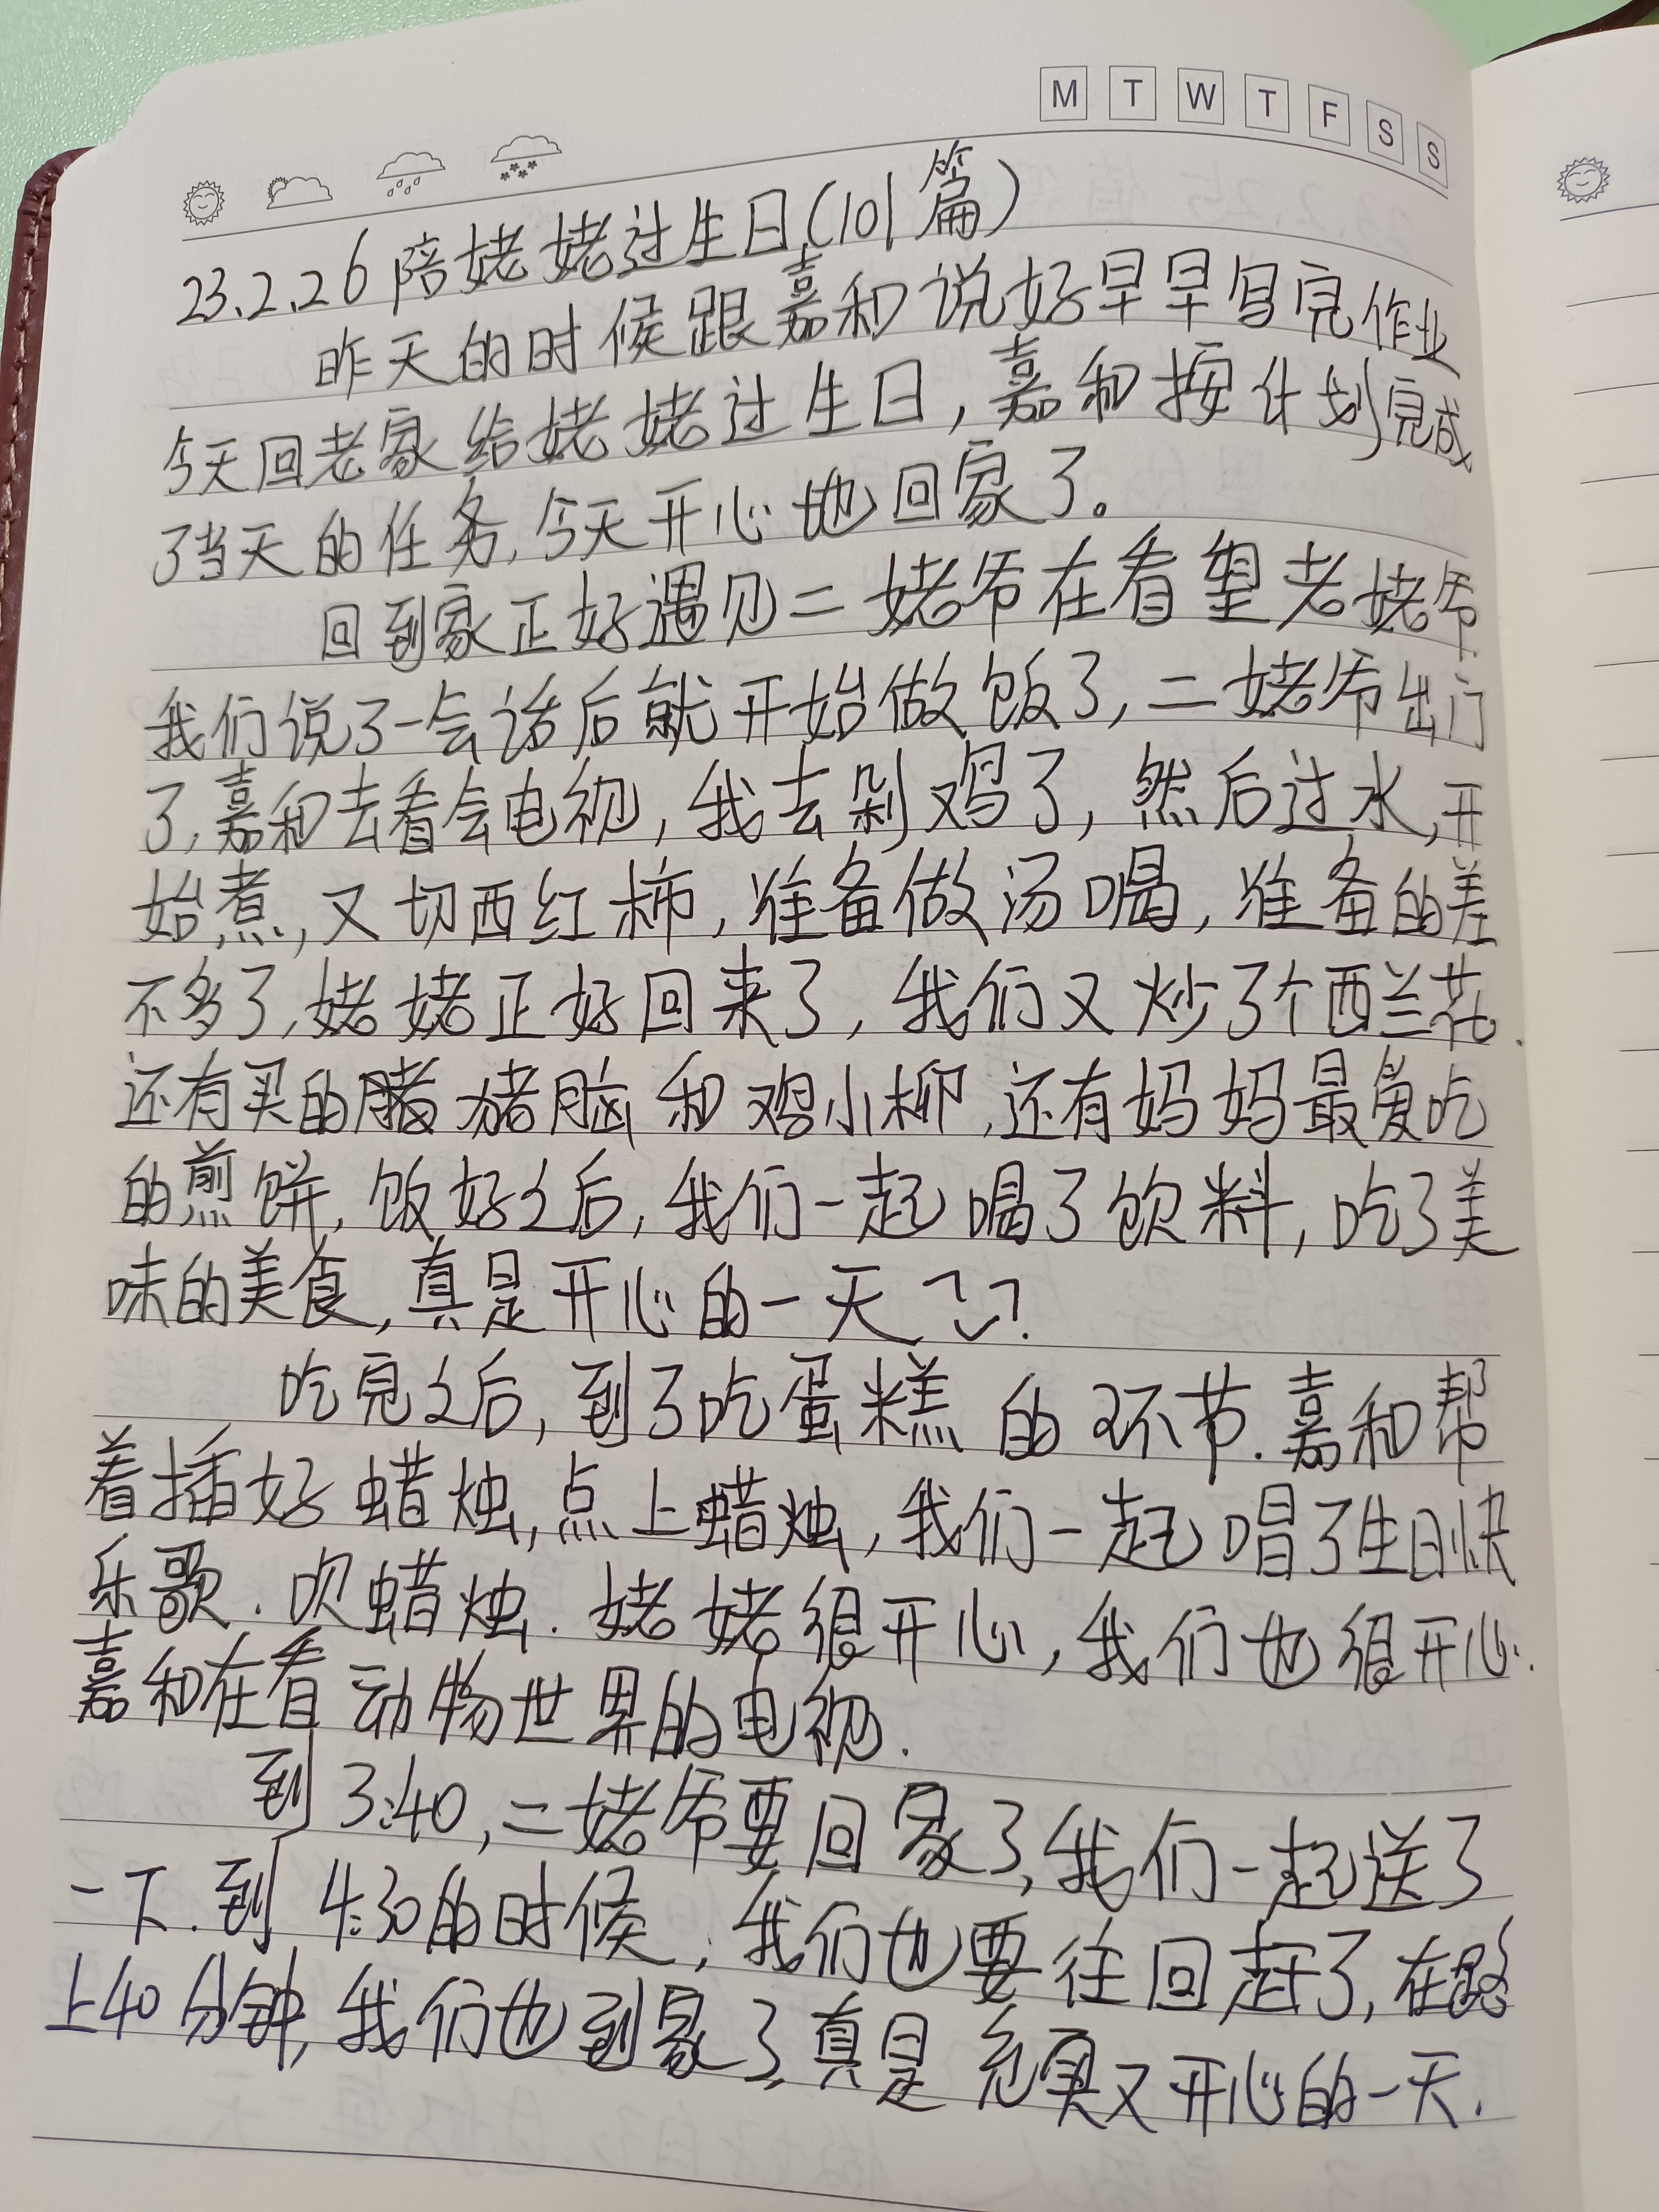 M T W T F S S
23.2.26 陪姥姥过生日(101篇)
昨天的时候跟嘉和说好早早写完作业
今天回老家给姥姥过生日,嘉和按计划完成
了当天的任务,今天开心地回家了。
回到家正好遇见二姥爷在看望老姥爷.
我们说了一会话后就开始做饭了,二姥爷出门
了,嘉和去看会电视,我去剁鸡了,然后过水,开
始煮,又切西红柿,准备做汤喝,准备的差
不多了,姥姥正好回来了,我们又炒了个西兰花.
还有买的猪脑和鸡小柳,还有妈妈最爱吃
的煎饼,饭好之后,我们一起喝了饮料,吃了美
味的美食,真是开心的一天
吃完之后,到了吃蛋糕的环节.嘉和帮
着插好蜡烛,点上蜡烛,我们一起唱了生日快
乐歌.吹蜡烛.姥姥很开心,我们也很开心.
嘉和在看动物世界的电视.
到3:40,二姥爷要回家了,我们一起送了
一下.到4:30的时候,我们也要往回赶了,在路
上40分钟,我们也到家了,真是充实又开心的一天.